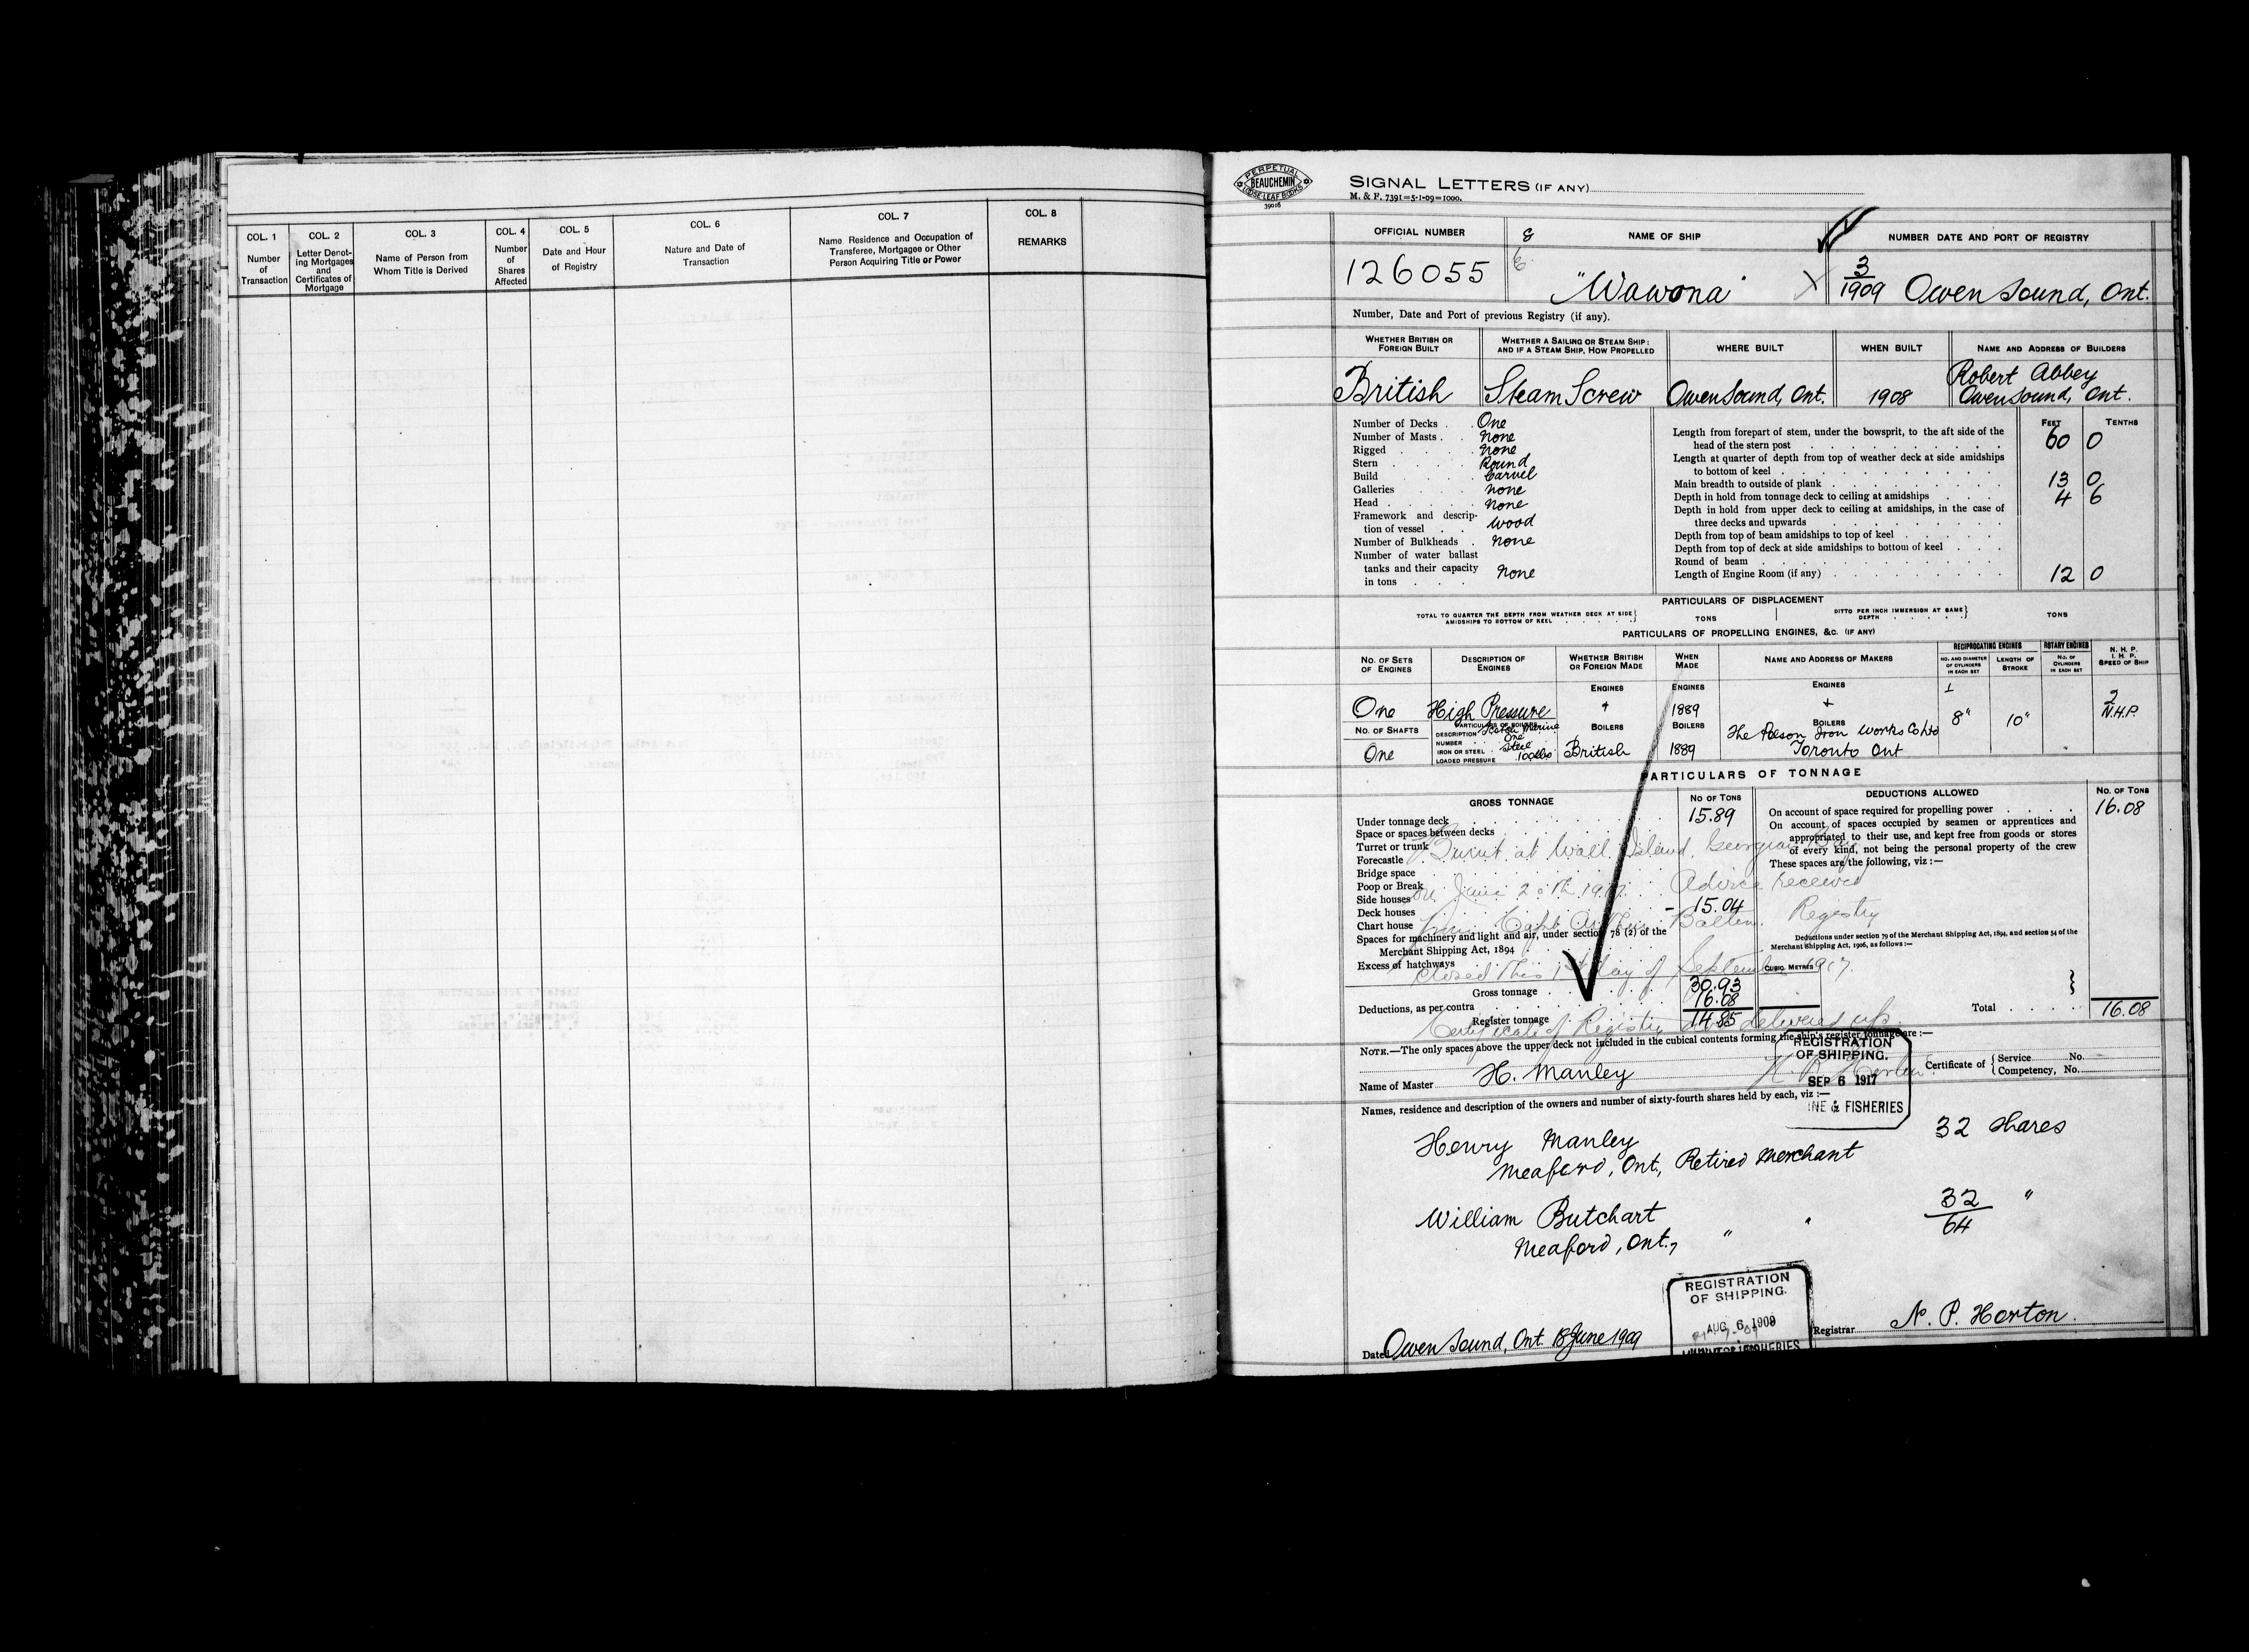 COL. 1
Number
of
Transaction
COL. 2
Letter Denot-
ing Mortgages
and
Certificates of
Mortgage
COL. 3
Name of Person from
Whom Title is Derived
COL. 4
Number
of
Shares
Affected
COL. 5
Date and Hour
of Registry
COL. 6
Nature and Date of
Transaction
COL. 7
Name Residence and Occupation of
Transferee, Mortgagee or Other
Person Acquiring Title or Power
COL. 8
REMARKS
PERPETUAL
BEAUCHEMIN
LOOSE LEAF BOOKS
39016
SIGNAL LETTERS (IF ANY)
M. & F. 7391=5-1-09=1000.
OFFICIAL NUMBER
126055
NAME OF SHIP
"Wawona"
NUMBER DATE AND PORT OF REGISTRY
3
1909 Owen Sound, Ont.
Number, Date and Port of previous Registry (if any).
WHETHER BRITISH OR
FOREIGN BUILT
British
WHETHER A SAILING OR STEAM SHIP:
AND IF A STEAM SHIP, HOW PROPELLED
Steam Screw
WHERE BUILT
Owen Sound, Ont.
WHEN BUILT
1908
NAME AND ADDRESS OF BUILDERS
Robert Abbey
Owen Sound, Ont.
Number of Decks . . One
Number of Masts . . None
Rigged . . . . None
Stern . . . . Round
Build . . . . Carvel
Galleries . . . None
Head . . . . . None
Framework and descrip-
tion of vessel . . Wood
Number of Bulkheads . None
Number of water ballast
tanks and their capacity
in tons . . . None
FEET TENTHS
Length from forepart of stem, under the bowsprit, to the aft side of the
head of the stern post 60 0
Length at quarter of depth from top of weather deck at side amidships
to bottom of keel
Main breadth to outside of plank 13 0
Depth in hold from tonnage deck to ceiling at amidships 4 6
Depth in hold from upper deck to ceiling at amidships, in the case of
three decks and upwards
Depth from top of beam amidships to top of keel
Depth from top of deck at side amidships to bottom of keel
Round of beam
Length of Engine Room (if any) 12 0
PARTICULARS OF DISPLACEMENT
TOTAL TO QUARTER THE DEPTH FROM WEATHER DECK AT SIDE
AMIDSHIPS TO BOTTOM OF KEEL
TONS
DITTO PER INCH IMMERSION AT SAME
DEPTH
TONS
PARTICULARS OF PROPELLING ENGINES, &C. (IF ANY)
NO. OF SETS
OF ENGINES
One
NO. OF SHAFTS
One
DESCRIPTION OF
ENGINES
High Pressure
PARTICULARS OF BOILERS
DESCRIPTION Scotch Marine
NUMBER One
IRON OR STEEL Steel
LOADED PRESSURE 100lbs
WHETHER BRITISH
OR FOREIGN MADE
ENGINES
BOILERS
British
WHEN
MADE
ENGINES
1889
BOILERS
1889
NAME AND ADDRESS OF MAKERS
ENGINES
+
BOILERS
The Polson Iron Works Co Ltd
Toronto Ont
RECIPROCATING ENGINES
NO. AND DIAMETER
OF CYLINDERS
IN EACH SET
1
8"
LENGTH OF
STROKE
10"
ROTARY ENGINES
NO. OF
CYLINDERS
IN EACH SET
N. H. P.
I. H. P.
SPEED OF SHIP
2
N.H.P.
PARTICULARS OF TONNAGE
GROSS TONNAGE
NO OF TONS
Under tonnage deck 15.89
Space or spaces between decks
Turret or trunk
Forecastle
Bridge space
Poop or Break
Side houses
Deck houses 15.04
Chart house
Spaces for machinery and light and air, under section 78 (2) of the
Merchant Shipping Act, 1894
Excess of hatchways
Gross tonnage 30.93
Deductions, as per contra 16.08
Register tonnage 14.85
DEDUCTIONS ALLOWED
NO. OF TONS
On account of space required for propelling power 16.08
On account of spaces occupied by seamen or apprentices and
appropriated to their use, and kept free from goods or stores
of every kind, not being the personal property of the crew
These spaces are the following, viz :—
Deductions under section 79 of the Merchant Shipping Act, 1894, and section 54 of the
Merchant Shipping Act, 1906, as follows :—
CUBIC METRES
Total 16.08
Burnt at Wall Island, Georgian Bay
on June 20th 1917. Advice received
from Capt Bolten. Registry
closed this 1st day of September 1917.
Certificate of Registry delivered up.
NOTE.—The only spaces above the upper deck not included in the cubical contents forming the ship's register tonnage are :—
REGISTRATION
OF SHIPPING.
SEP 6 1917
INE & FISHERIES
Name of Master H. Manley
Certificate of
Service No.
Competency, No.
Names, residence and description of the owners and number of sixty-fourth shares held by each, viz :—
Henry Manley 32 shares
Meaford, Ont, Retired Merchant
William Butchart 32 "
64
Meaford, Ont., " "
REGISTRATION
OF SHIPPING.
AUG 6 1909
Dated Owen Sound, Ont. 18 June 1909
Registrar N. P. Horton.